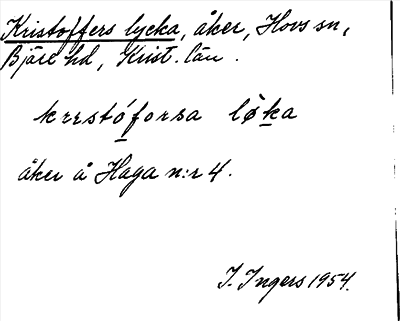 Kristoffers lycka, åker, Hovs sn,
Bjäre hd, Krist. län.
krɪstóforsa lø̀ka
åker å Haga n:r 4.
I. Ingers 1954.